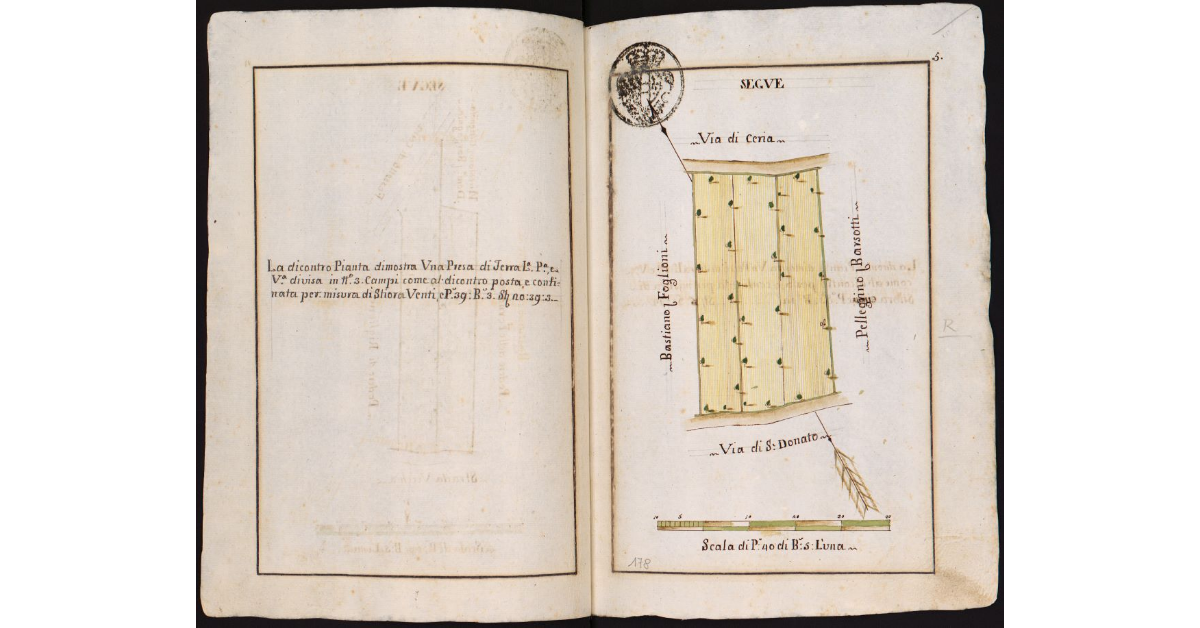 La dicontro Pianta dimostra Vna Presa di Terra La. Pa., e
Va. divisa in No. 3. Campi come al dicontro posta, e confi-
nata per misura di Stiora Venti, e Pe. 39: Ba. 3. 
5.
SEGVE
Via di Ceria
Bastiano Foglioni
Pellegrino Barsotti
Via di S: Donato
10 5 10 20 30
Scala di Pe. 40 di Ba. 5: L'una
R
178